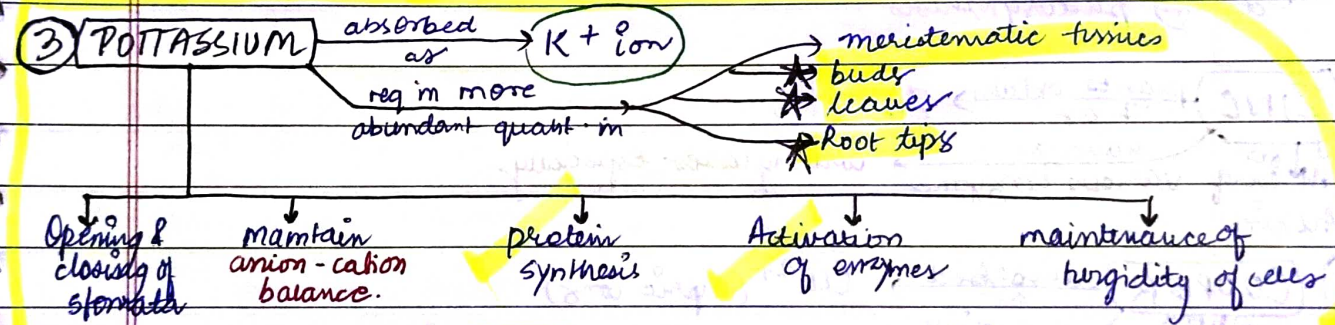 3 POTTASSIUM
absorbed
as
K+ ion
req in more
abundant quant. in
meristematic tissues
buds
leaves
Root tips
Opening &
closing of
stomata
maintain
anion-cation
balance.
protein
synthesis
Activation
of enzymes
maintenance of
turgidity of cells